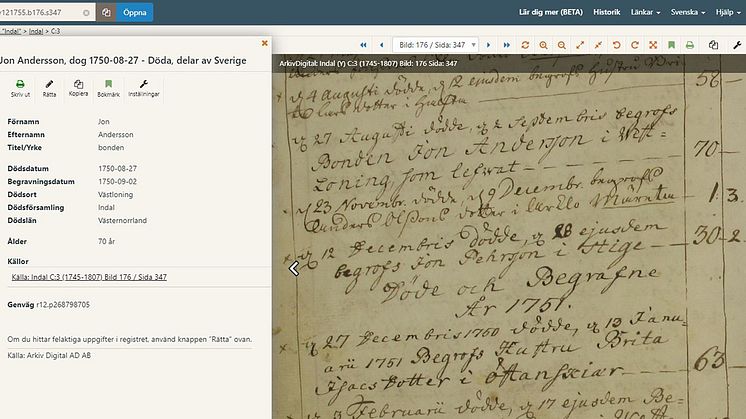 v121755.b176.s347
Öppna
Lär dig mer (BETA)
Historik
Länkar
Svenska
Hjälp
"Indal" > Indal > C:3
Jon Andersson, dog 1750-08-27 - Döda, delar av Sverige
Skriv ut
Rätta
Kopiera
Bokmärk
Inställningar
Förnamn Jon
Efternamn Andersson
Titel/Yrke bonden
Dödsdatum 1750-08-27
Begravningsdatum 1750-09-02
Dödsort Västloning
Dödsförsamling Indal
Dödslän Västernorrland
Ålder 70 år
Källor
Källa: Indal C:3 (1745-1807) Bild 176 / Sida 347
Genväg r12.p268798705
Om du hittar felaktiga uppgifter i registret, använd knappen "Rätta" ovan.
Källa: Arkiv Digital AD AB
Bild: 176 / Sida: 347
ArkivDigital: Indal (Y) C:3 (1745-1807) Bild: 176 Sida: 347
4 Augusti dödde, 12 ejusdem begrofs Hustru
dotter i 58
27 Augusti dödde, 2 Septembris begrofs
Bonden Jon Anderson i Wäst-
Loning, som lefwat 70
23 Novembr. dödde, 9 Decembr. begrofs
dotter i 1. 3.
12 Decembris dödde, 28 ejusdem
begrofs Jon Pehrson i Stige 30 2
Döde och Begrafne
År 1751.
27 Decembris 1750 dödde, 13 Janu-
arii 1751 Begrofs Hustru Brita
Isacs dotter i 63
3 Februarii dödde, 17 ejusdem Be-